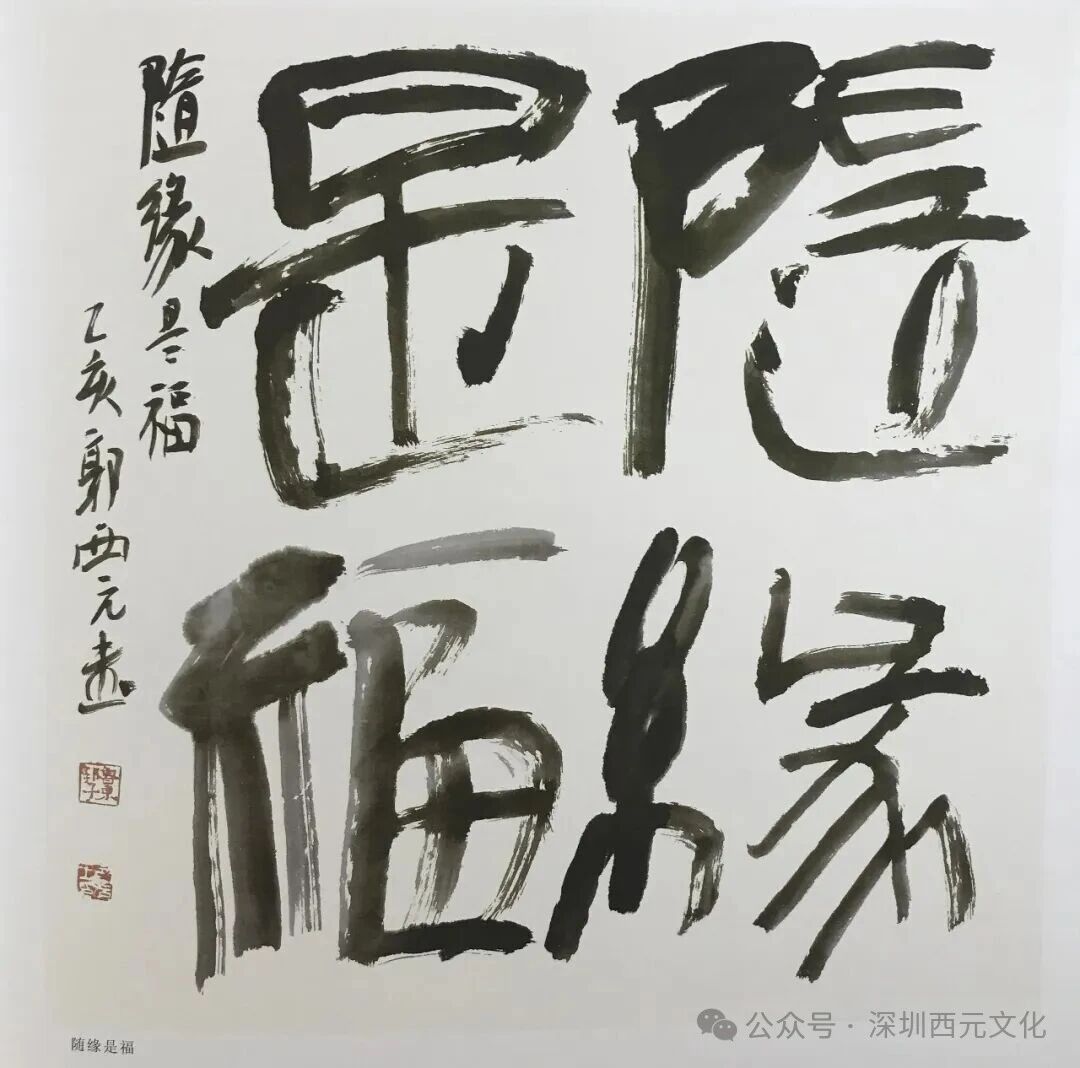 隨緣
是福
隨緣是福
乙亥 郭西元書
随缘是福
公众号·深圳西元文化